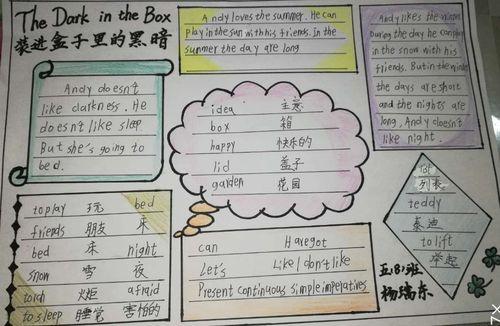 The Dark in the Box
装进盒子里的黑暗
Andy doesn't
like darkness. He
doesn't like sleep
But she's going to
bed.
Andy loves the summer. He can
play in the sun with his friends. In the
summer the day are long
Andy likes the winter
During the day he can play
in the snow with his
friends. But in the winter
the days are short
and the nights are
long. Andy doesn't
like night.
idea 主意
box 箱
happy 快乐的
lid 盖子
garden 花园
to play 玩 bed
friends 朋友 床
bed 床 night
snow 雪 夜
torch 火炬 afraid
to sleep 睡觉 害怕的
can Have got
Let's Like / don't like
Present continuous simple imperatives
list
列表
teddy
泰迪
to lift
举起
五(8)班
杨瑞东